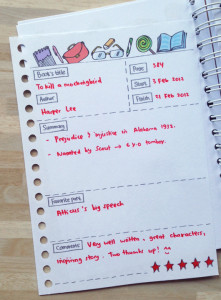 Book's title
To kill a mockingbird
Author
Harper Lee
Page
384
Start
3 Feb 2012
Finish
21 Feb 2012
Summary
- Prejudice & injustice in Alabama 1932.
- Narrated by Scout → 6 y.o tomboy.
Favourite part
Atticus's big speech
Comment
Very well written, great characters,
inspiring story. Two thumbs up!